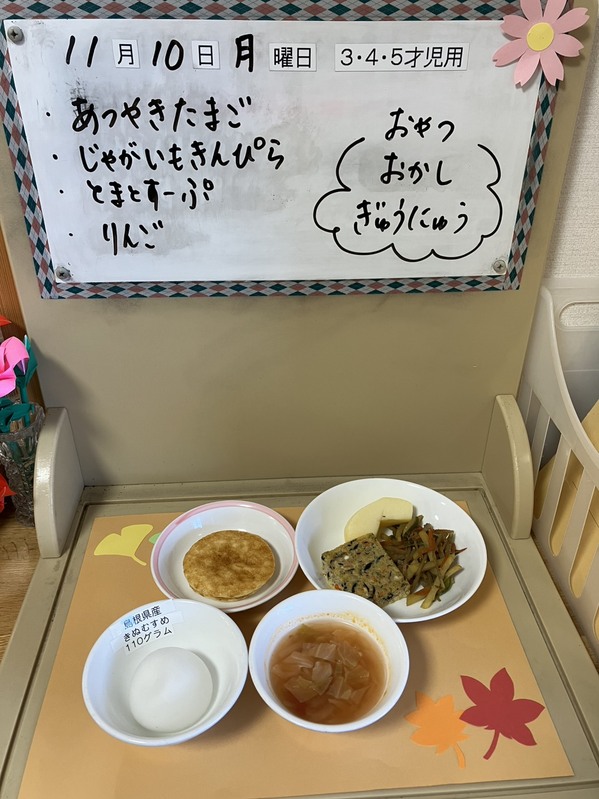 11月10日月曜日 3・4・5才児用
・あつやきたまご
・じゃがいもきんぴら
・とまとすーぷ
・りんご
おやつ
おかし
ぎゅうにゅう
島根県産
きぬむすめ
110グラム